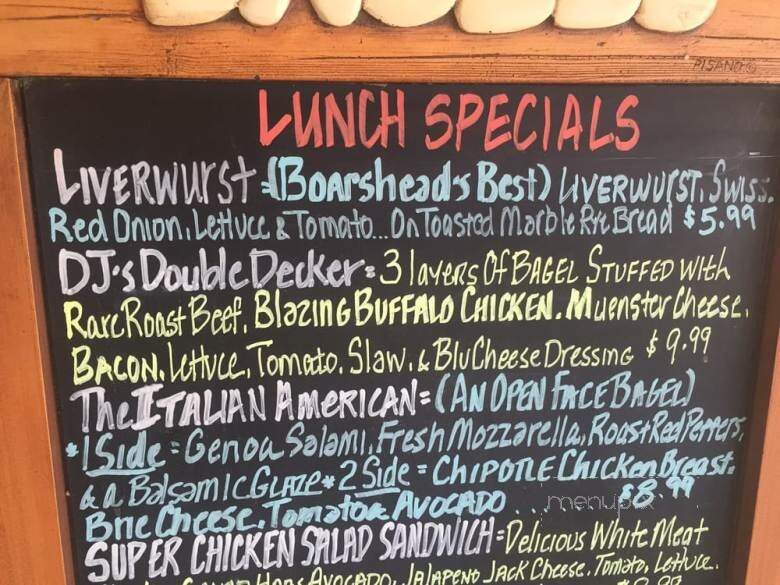 PISANO
LUNCH SPECIALS
LIVERWURST (BOARShead's Best) LIVERWURST, SWISS,
Red Onion, Lettuce & Tomato... On Toasted Marble Rye Bread $5.99
DJ's Double Decker = 3 layers Of BAGEL STUFFED With
Rare Roast Beef, BlaziNG BUFFALO CHICKEN, Muenster Cheese,
BACON, Lettuce, Tomato, Slaw, & Blu Cheese Dressing $9.99
The ITALIAN AMERICAN = (AN OPEN FACE BAGEL)
*1 Side = Genoa Salami, Fresh Mozzarella, Roast Red Peppers,
& a Balsamic GLAZE * 2 Side = CHIPOTLE Chicken Breast,
Brie Cheese, Tomato & AVOCADO ... $8.99
menupix
SUPER CHICKEN SALAD SANDWICH = Delicious White Meat
AVOCADO, JALAPENO JACK Cheese, Tomato, Lettuce,